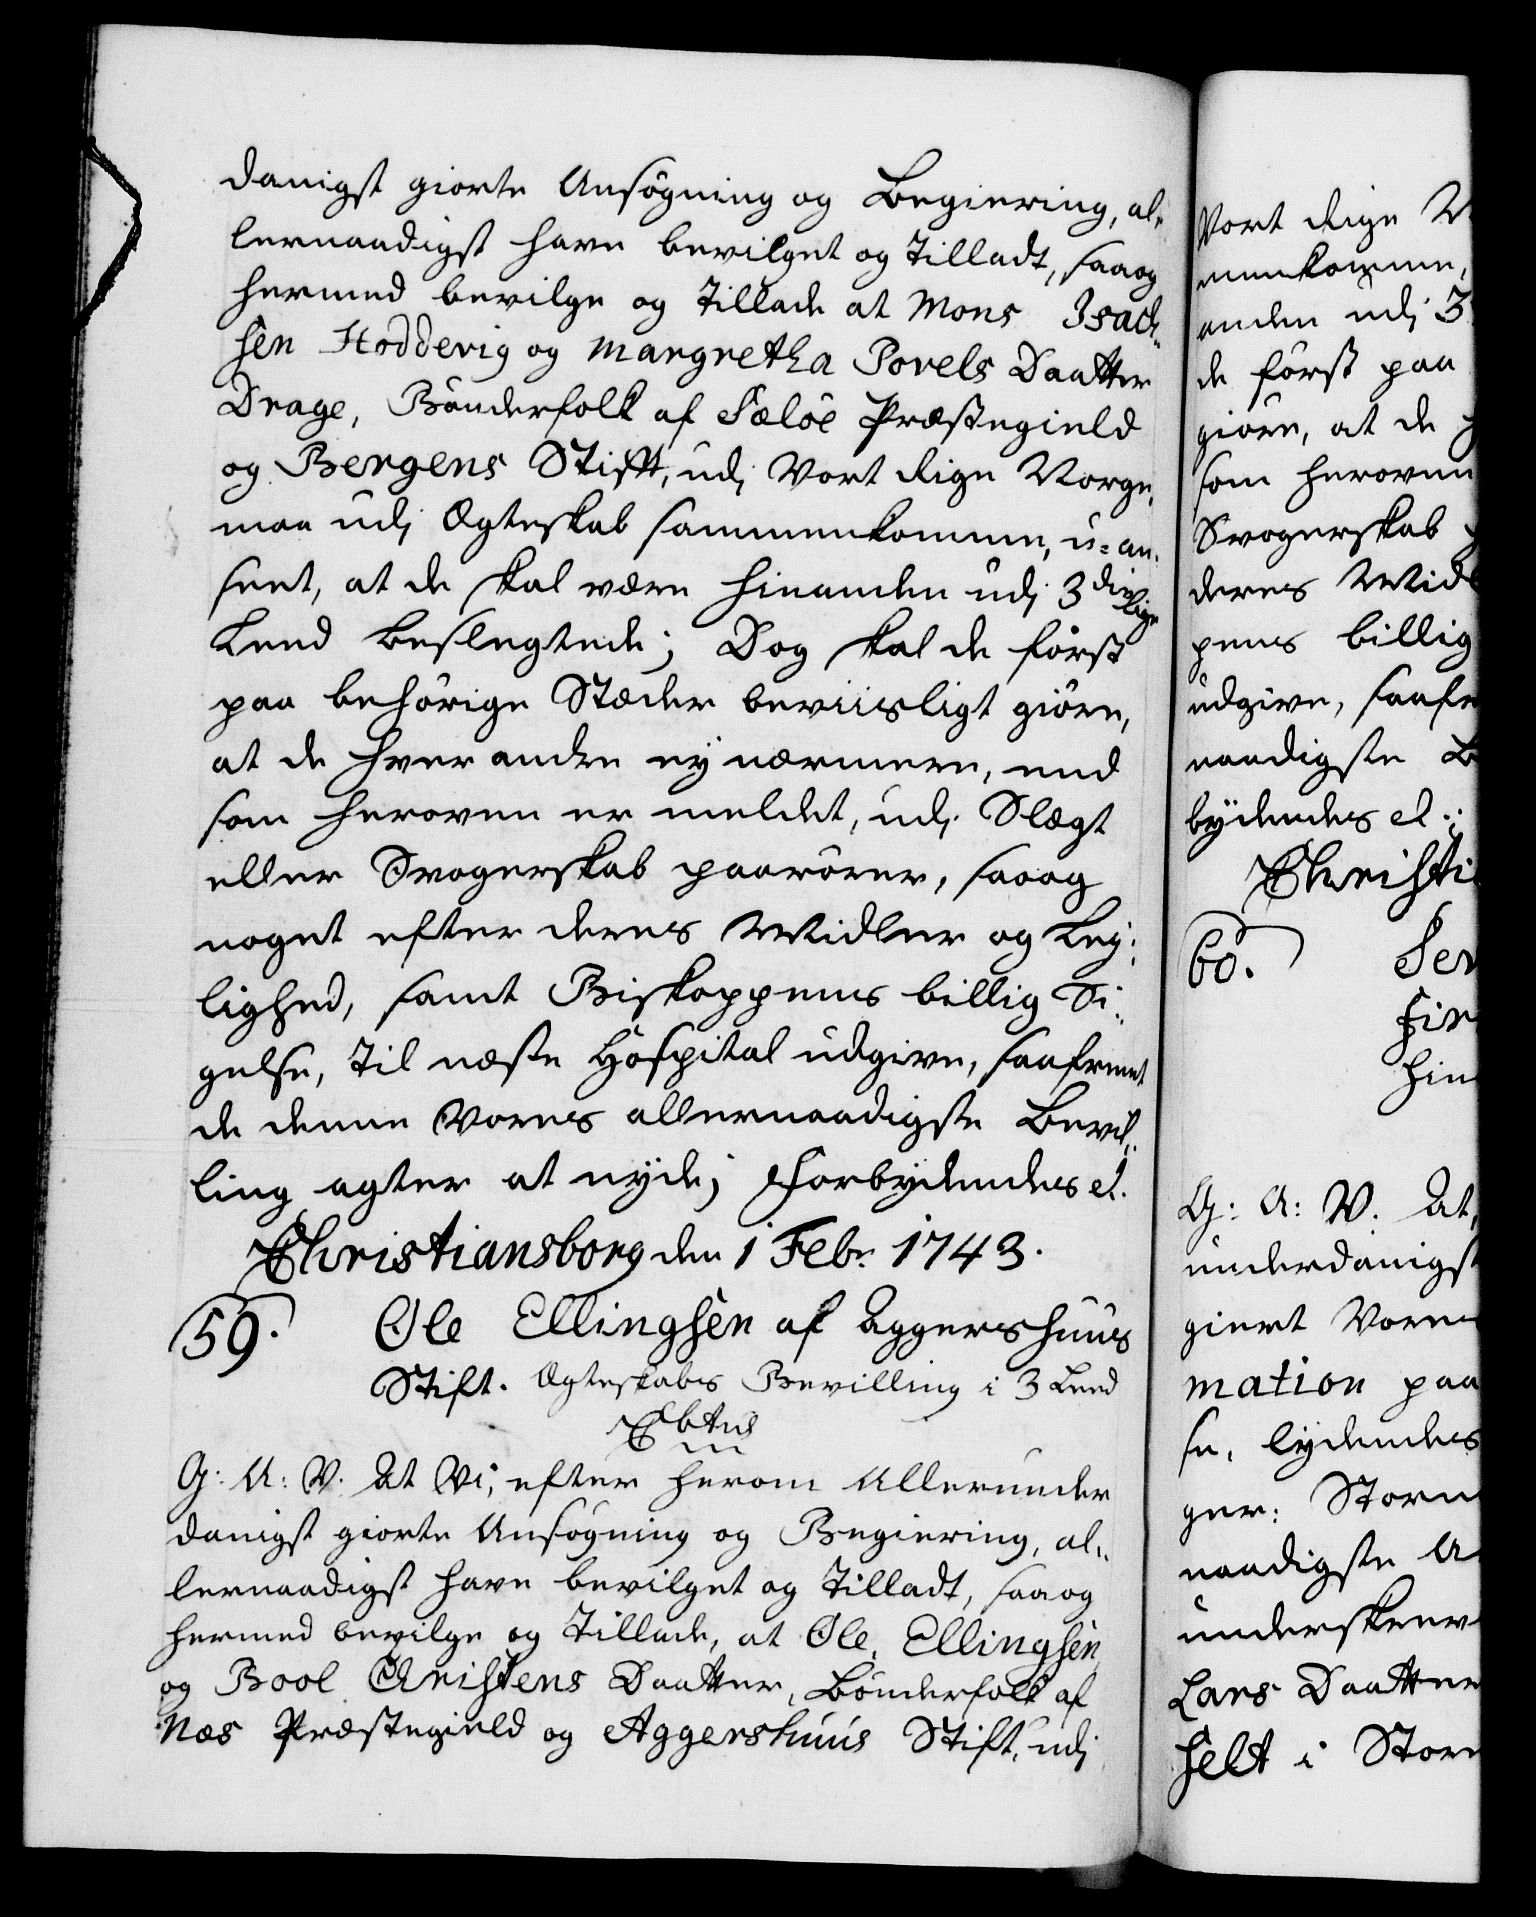 danigst giorte Ansøgning og Begiering, al„
lernaadigst have bevilget og Tilladt, saaog
hermed bevilge og Tillade at Mons Isach„
sen Hoddevig og Margretha Povels Daatter
Drage, Bønderfolk af Sæløe Præstegield
og Bergens Stifft, udj Vort Rige Norge,
maa udj Ægteskab sammenkomme, u=an„
seet, at de skal være hinanden udj 3die lige
Leed beslegtede; Dog skal de først
paa behørige Stæder beviisligt giøre,
at de hverandre ey nærmere, end
som heroven er meldet, udj Slægt
eller Svogerskab paarører, saaog
noget efter deres Midler og Ley„
lighed, samt Biskoppens billig Si„
gelse, til næste Hospital udgive, saafremt
de denne Vores allernaadigste Bevil„
ling agter at nyde; Forbydendes et.
Christiansborg den 1 Febr. 1743.
59. Ole Ellingsen af Aggershuus
Stift. Ægteskabs Bevilling i 3 Leed
G: A: V. At Vi, efter herom Allerunder
danigst giorte Ansøgning og Begiering, al„
lernaadigst have bevilget og Tilladt, saaog
hermed bevilge og Tillade, at Ole Ellingsen
og Boel Christens Daatter, Bønderfolk af
Næs Præstegield og Aggershuus Stift, udj
Vort Rige
menkomme,
anden udj 3
de først paa
giøre, at de
som heroven
Svogerskab
deres Midl
pens billig
udgive, saafr
naadigste B
bydendes et.
Christi
60. Ser
Fir
hin
G: A: V. At,
underdanigst
giert Vores
mation paa
se, lydendes
ger: Storm
naadigste A
underskrev
Lars Daatter
felt i Stor